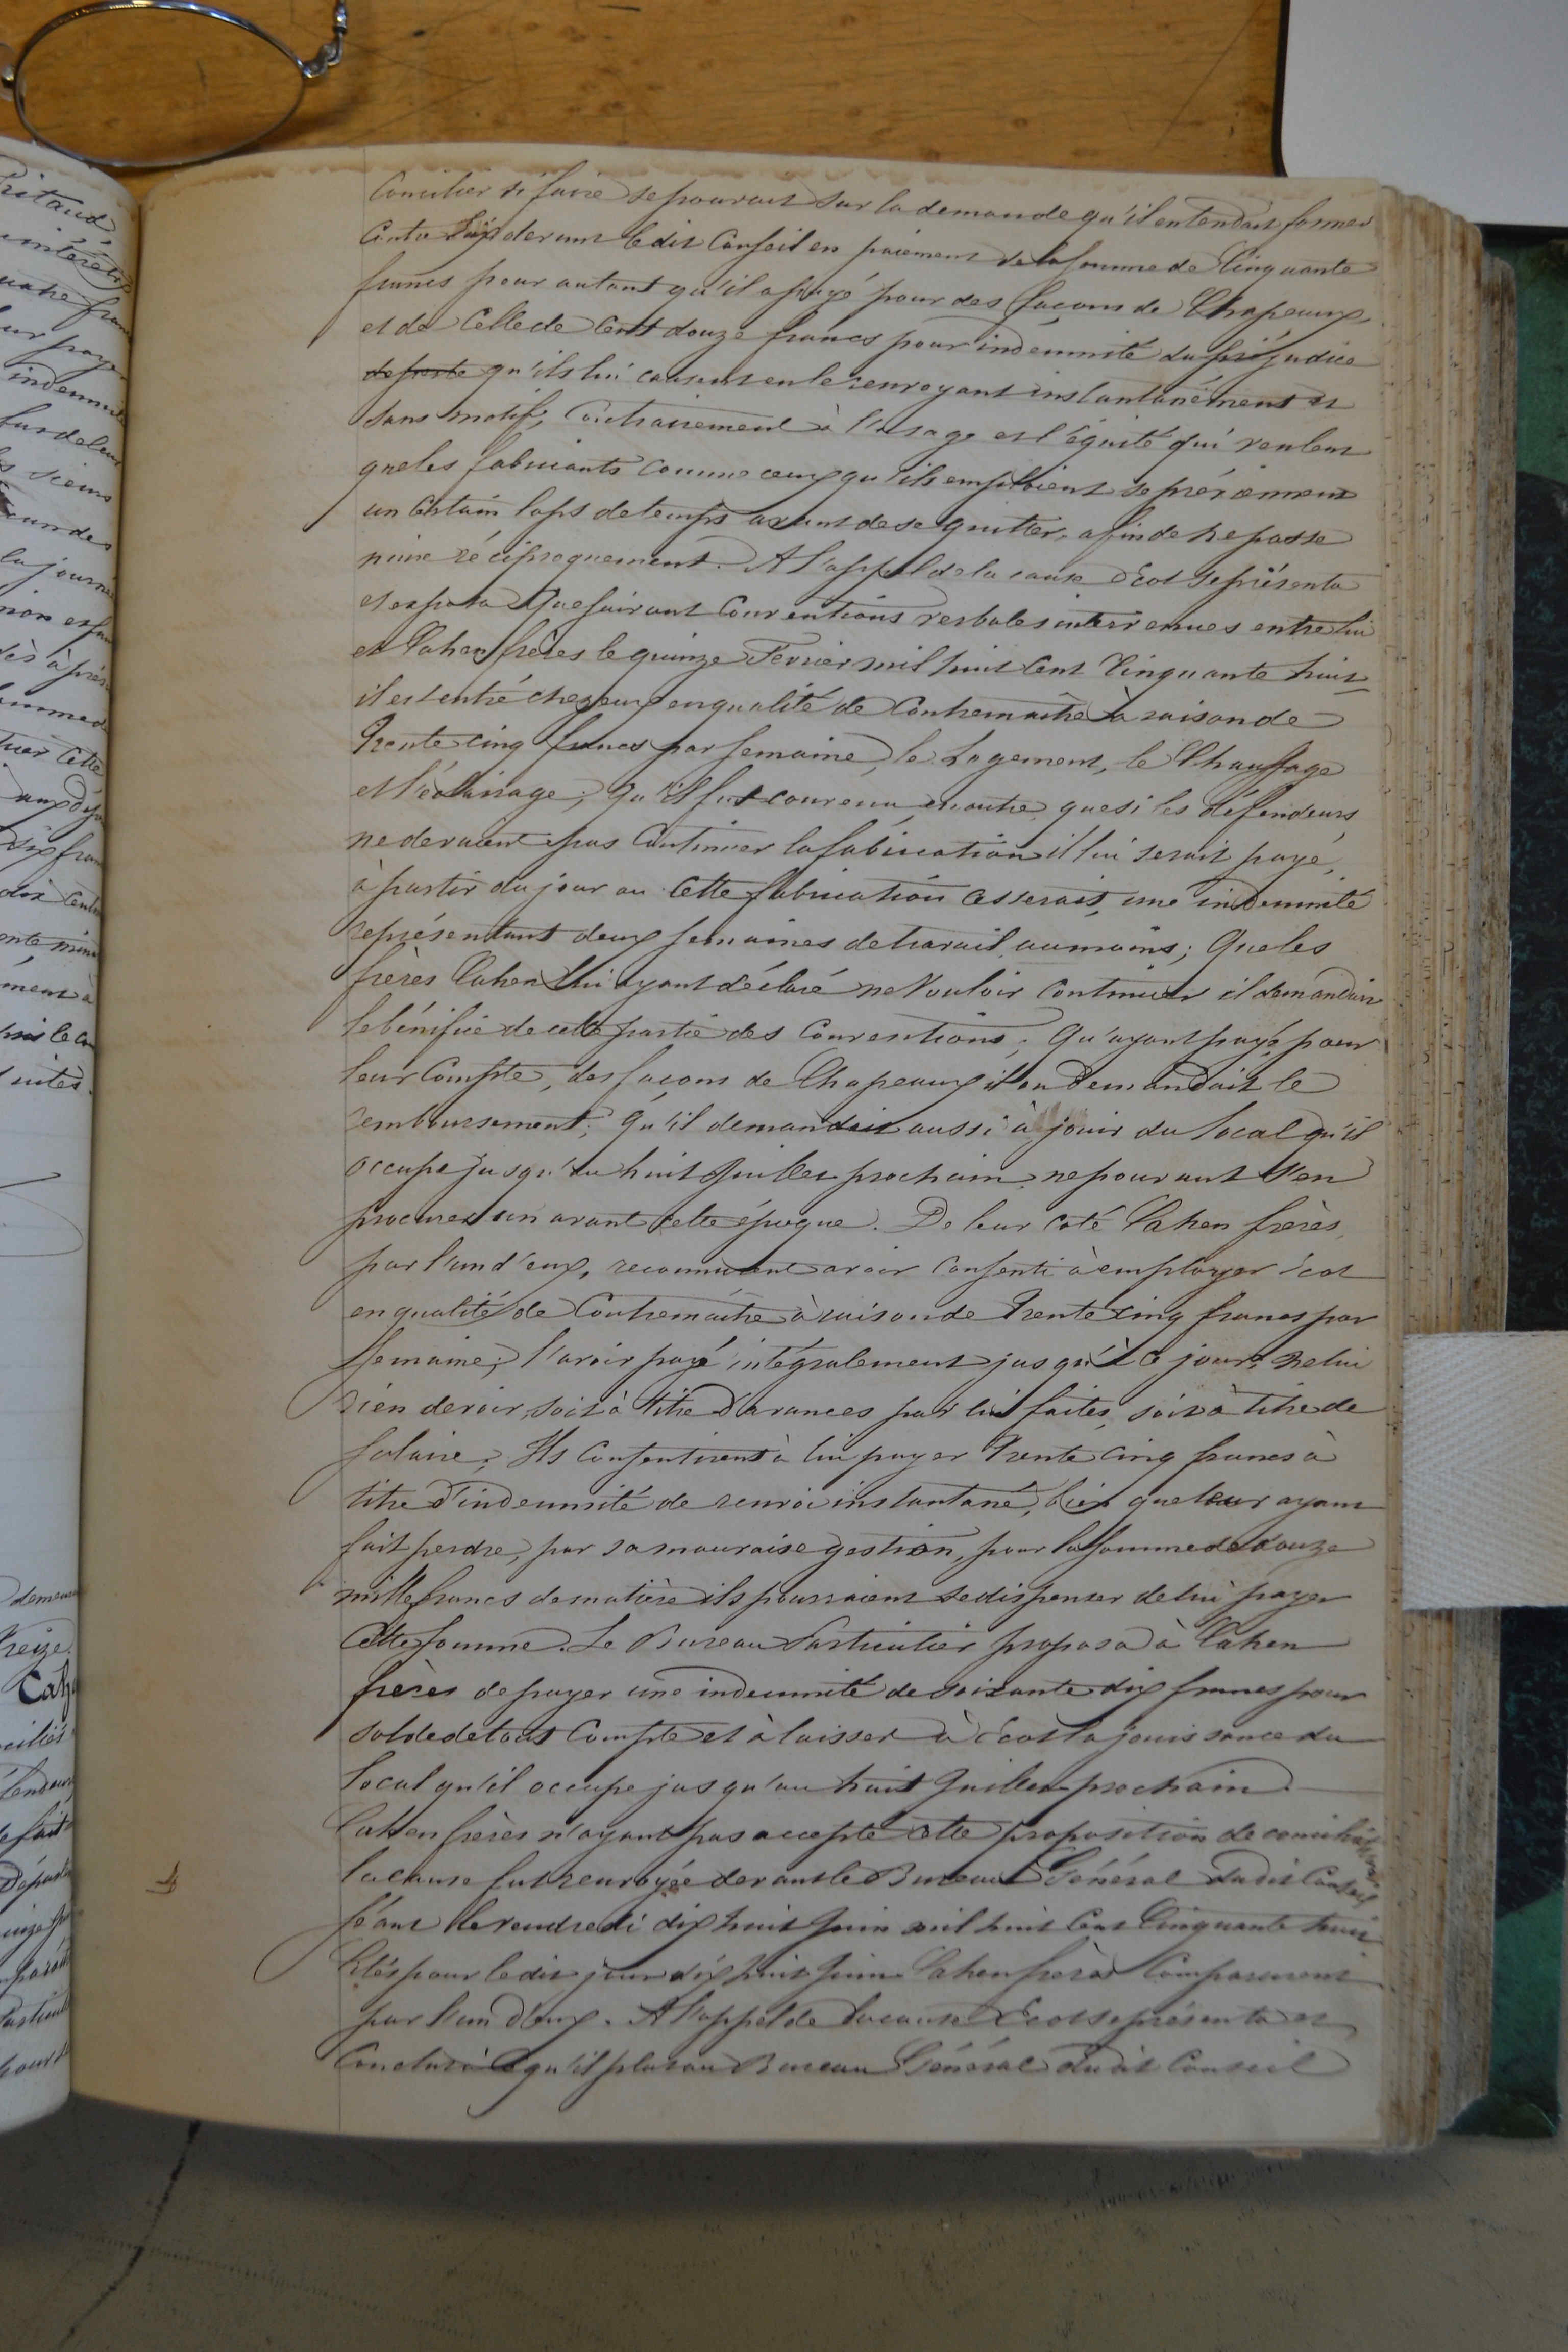 Concilier si faire se pouvait sur la demande qu'il entendait former
contre eux devant ledit Conseil en paiement de la somme de Cinquante
francs pour autant qu'il a payé pour des façons de Chapeaux
et de Celle de Cent douze francs pour indemnité du préjudice
qu'ils lui causent en le renvoyant instantanément et
sans motif, Contrairement à l'usage et l'équité qui veulent
que les fabricants comme ceux qu'ils emploient se préviennent
un Certain laps de temps avant de se quitter, afin de ne pas se
nuire réciproquement. A l'appel de la cause Ecot se présenta
et exposa Que suivant Conventions verbales intervenues entre lui
et Cahen frères le quinze Fevrier mil huit Cent Cinquante huit
il est entré chez eux en qualité de Contremaître à raison de
Trente cinq francs par semaine, le Logement, le Chauffage
et l'éclairage; Qu'il fut convenu en outre que si les défendeurs
ne devaient pas Continuer la fabrication il lui serait payé,
à partir du jour ou Cette fabrication Cesserait, une indemnité
représentant deux semaines de travail au moins; Que les
frères Cahen lui ayant déclaré ne Vouloir Continuer il demandait
le bénéfice de cette partie des Conventions; Qu'ayant payé, pour
leur Compte, des façons de Chapeaux il en Demandait le
remboursement; Qu'il demandait aussi à jouir du local qu'il
occupe jusqu'au huit Juillet prochain ne pouvant s'en
procurer un avant cette époque. De leur coté Cahen frères,
par l'un d'eux, reconnurent avoir Consenti à employer Ecot
en qualité de Contremaître à raison de Trente cinq francs par
semaine; l'avoir payé intégralement jusqu'à ce jour; Ne lui
rien devoir, soit à titre d'avances par lui faites, soit à titre de
Salaire; Ils Consentirent à lui payer Trente Cinq francs à
titre d'indemnité de renvoi instantané, bien que leur ayant
fait perdre, par sa mauvaise gestion, pour la somme de douze
mille francs de matière ils pourraient se dispenser de lui payer
Cette somme. Le Bureau Particulier proposa à Cahen
frères de payer une indemnité de soixante dix francs pour
solde de tout Compte et à laisser à Ecot la jouissance du
local qu'il occupe jusqu'au huit Juillet prochain.
Cahen frères n'ayant pas accepté cette proposition de conciliation
la cause fut renvoyée devant le Bureau Général dudit Conseil
séant le vendredi dix huit Juin mil huit Cent Cinquante huit.
Cités pour ledit jour dix huit Juin Cahen frères Comparurent
par l'un d'eux. A l'appel de la cause Ecot se présenta et
Conclut à ce qu'il plut au Bureau Général dudit Conseil